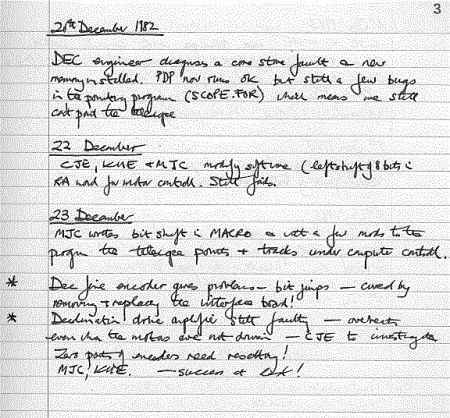 3
20th December 1982
DEC engineer diagnoses a core store fault & new
memory installed. PDP now runs OK but still a few bugs
in the pointing program (SCOPE.FOR) which means we still
cant point the telescope
22 December
CJE, KHE + MJC modify software (left shift of 8 bits in
RA word for motor control. Still fails.
23 December
MJC writes bit shift in MACRO & with a few mods to the
program the telescope points + tracks under computer control.
* Dec fine encoder gives problems - bit jumps - cured by
removing + replacing the interface board!
* Declination drive amplifier still faulty - overheats
even when the motors are not driven - CJE to investigate
Zero points of encoders need resetting!
MJC, KHE. - success at last!